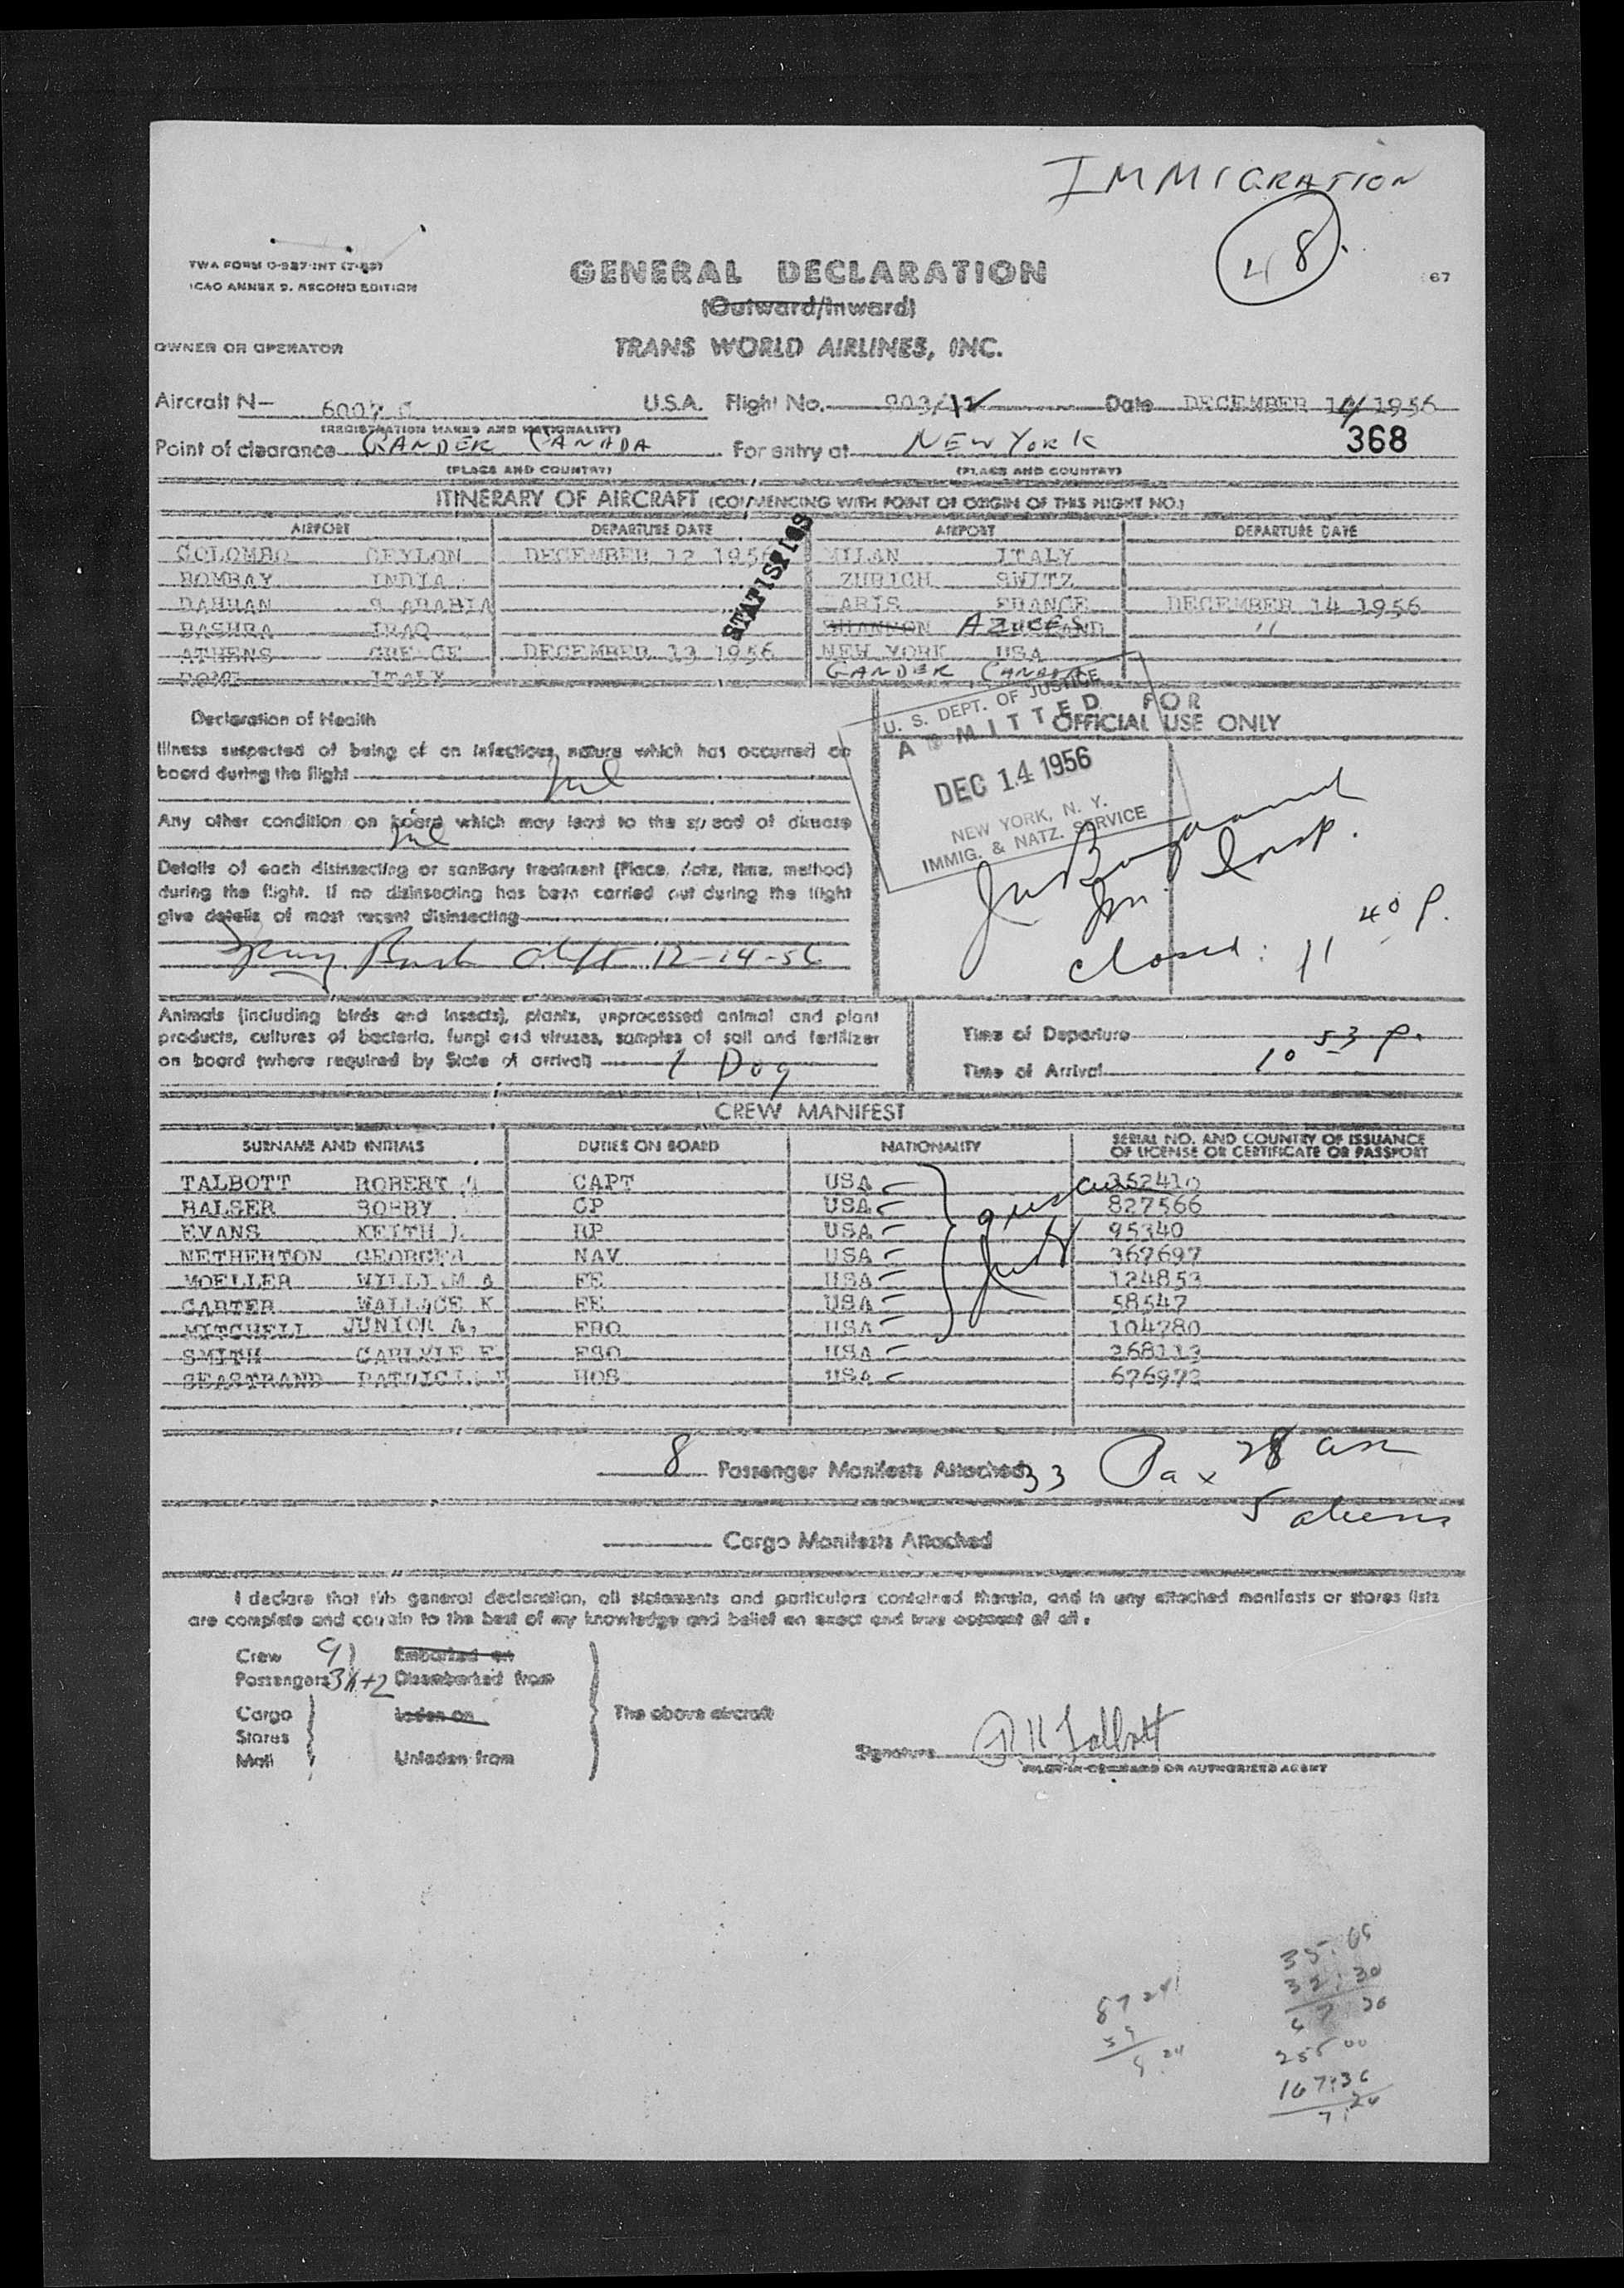 IMMIGRATION
48
TWA FORM O-937-INT
ICAO ANNEX 9, SECOND EDITION
GENERAL DECLARATION
67
(Outward/Inward)
OWNER OR OPERATOR
TRANS WORLD AIRLINES, INC.
Aircraft N— U.S.A. Flight No. 903/12 Date DECEMBER 14/1956
(REGISTRATION MARKS AND NATIONALITY)
368
Point of clearance GANDER CANADA For entry at NEW YORK
(PLACE AND COUNTRY) (PLACE AND COUNTRY)
ITINERARY OF AIRCRAFT (COMMENCING WITH POINT OF ORIGIN OF THIS FLIGHT NO.)
AIRPORT DEPARTURE DATE AIRPORT DEPARTURE DATE
COLOMBO CEYLON DECEMBER 12 1956 MILAN ITALY
BOMBAY INDIA ZURICH SWITZ
DAHRAN S ARABIA ARIS FRANCE DECEMBER 14 1956
BASHRA IRAQ SHANNON AZORES "
ATHENS GREECE DECEMBER 13 1956 NEW YORK USA
ROME ITALY GANDER CANADA
STATISTICS
Declaration of Health
FOR
OFFICIAL USE ONLY
U. S. DEPT. OF JUSTICE
ADMITTED
DEC 14 1956
NEW YORK, N. Y.
IMMIG. & NATZ. SERVICE
Illness suspected of being of an infectious nature which has occurred on
board during the flight nil
Any other condition on board which may lead to the spread of disease
nil
Details of each disinsecting or sanitary treatment (Place, date, time, method)
during the flight. If no disinsecting has been carried out during the flight
give details of most recent disinsecting
12-14-56
Im. Insp.
closed: 11 40 P.
Animals (including birds and insects), plants, unprocessed animal and plant
products, cultures of bacteria, fungi and viruses, samples of soil and fertilizer
on board (where required by State of arrival) 1 Dog
Time of Departure
Time of Arrival 10 53 P.
CREW MANIFEST
SURNAME AND INITIALS DUTIES ON BOARD NATIONALITY SERIAL NO. AND COUNTRY OF ISSUANCE
OF LICENSE OR CERTIFICATE OR PASSPORT
TALBOTT ROBERT CAPT USA 352410
BALSER BOBBY CP USA 827566
EVANS KEITH RP USA 95340
NETHERTON GEORGE NAV USA 367697
MOELLER WILLIAM A FE USA 124853
CARTER WALLACE K FE USA 58547
MITCHELL JUNIOR A, FRO USA 104780
SMITH CARLYLE F FSO USA 268113
SEASTRAND PATRICIA HOS USA 676973
8 Passenger Manifests Attached 33 Pax 28
5 aliens
Cargo Manifests Attached
I declare that this general declaration, all statements and particulars contained therein, and in any attached manifests or stores lists
are complete and contain to the best of my knowledge and belief an exact and true account of all:
Crew 9 Embarked on
Passengers 31+2 Disembarked from
Cargo Laden on The above aircraft
Stores
Mail Unladen from
Signature R H Talbott
PILOT-IN-COMMAND OR AUTHORIZED AGENT
255 00
167:36